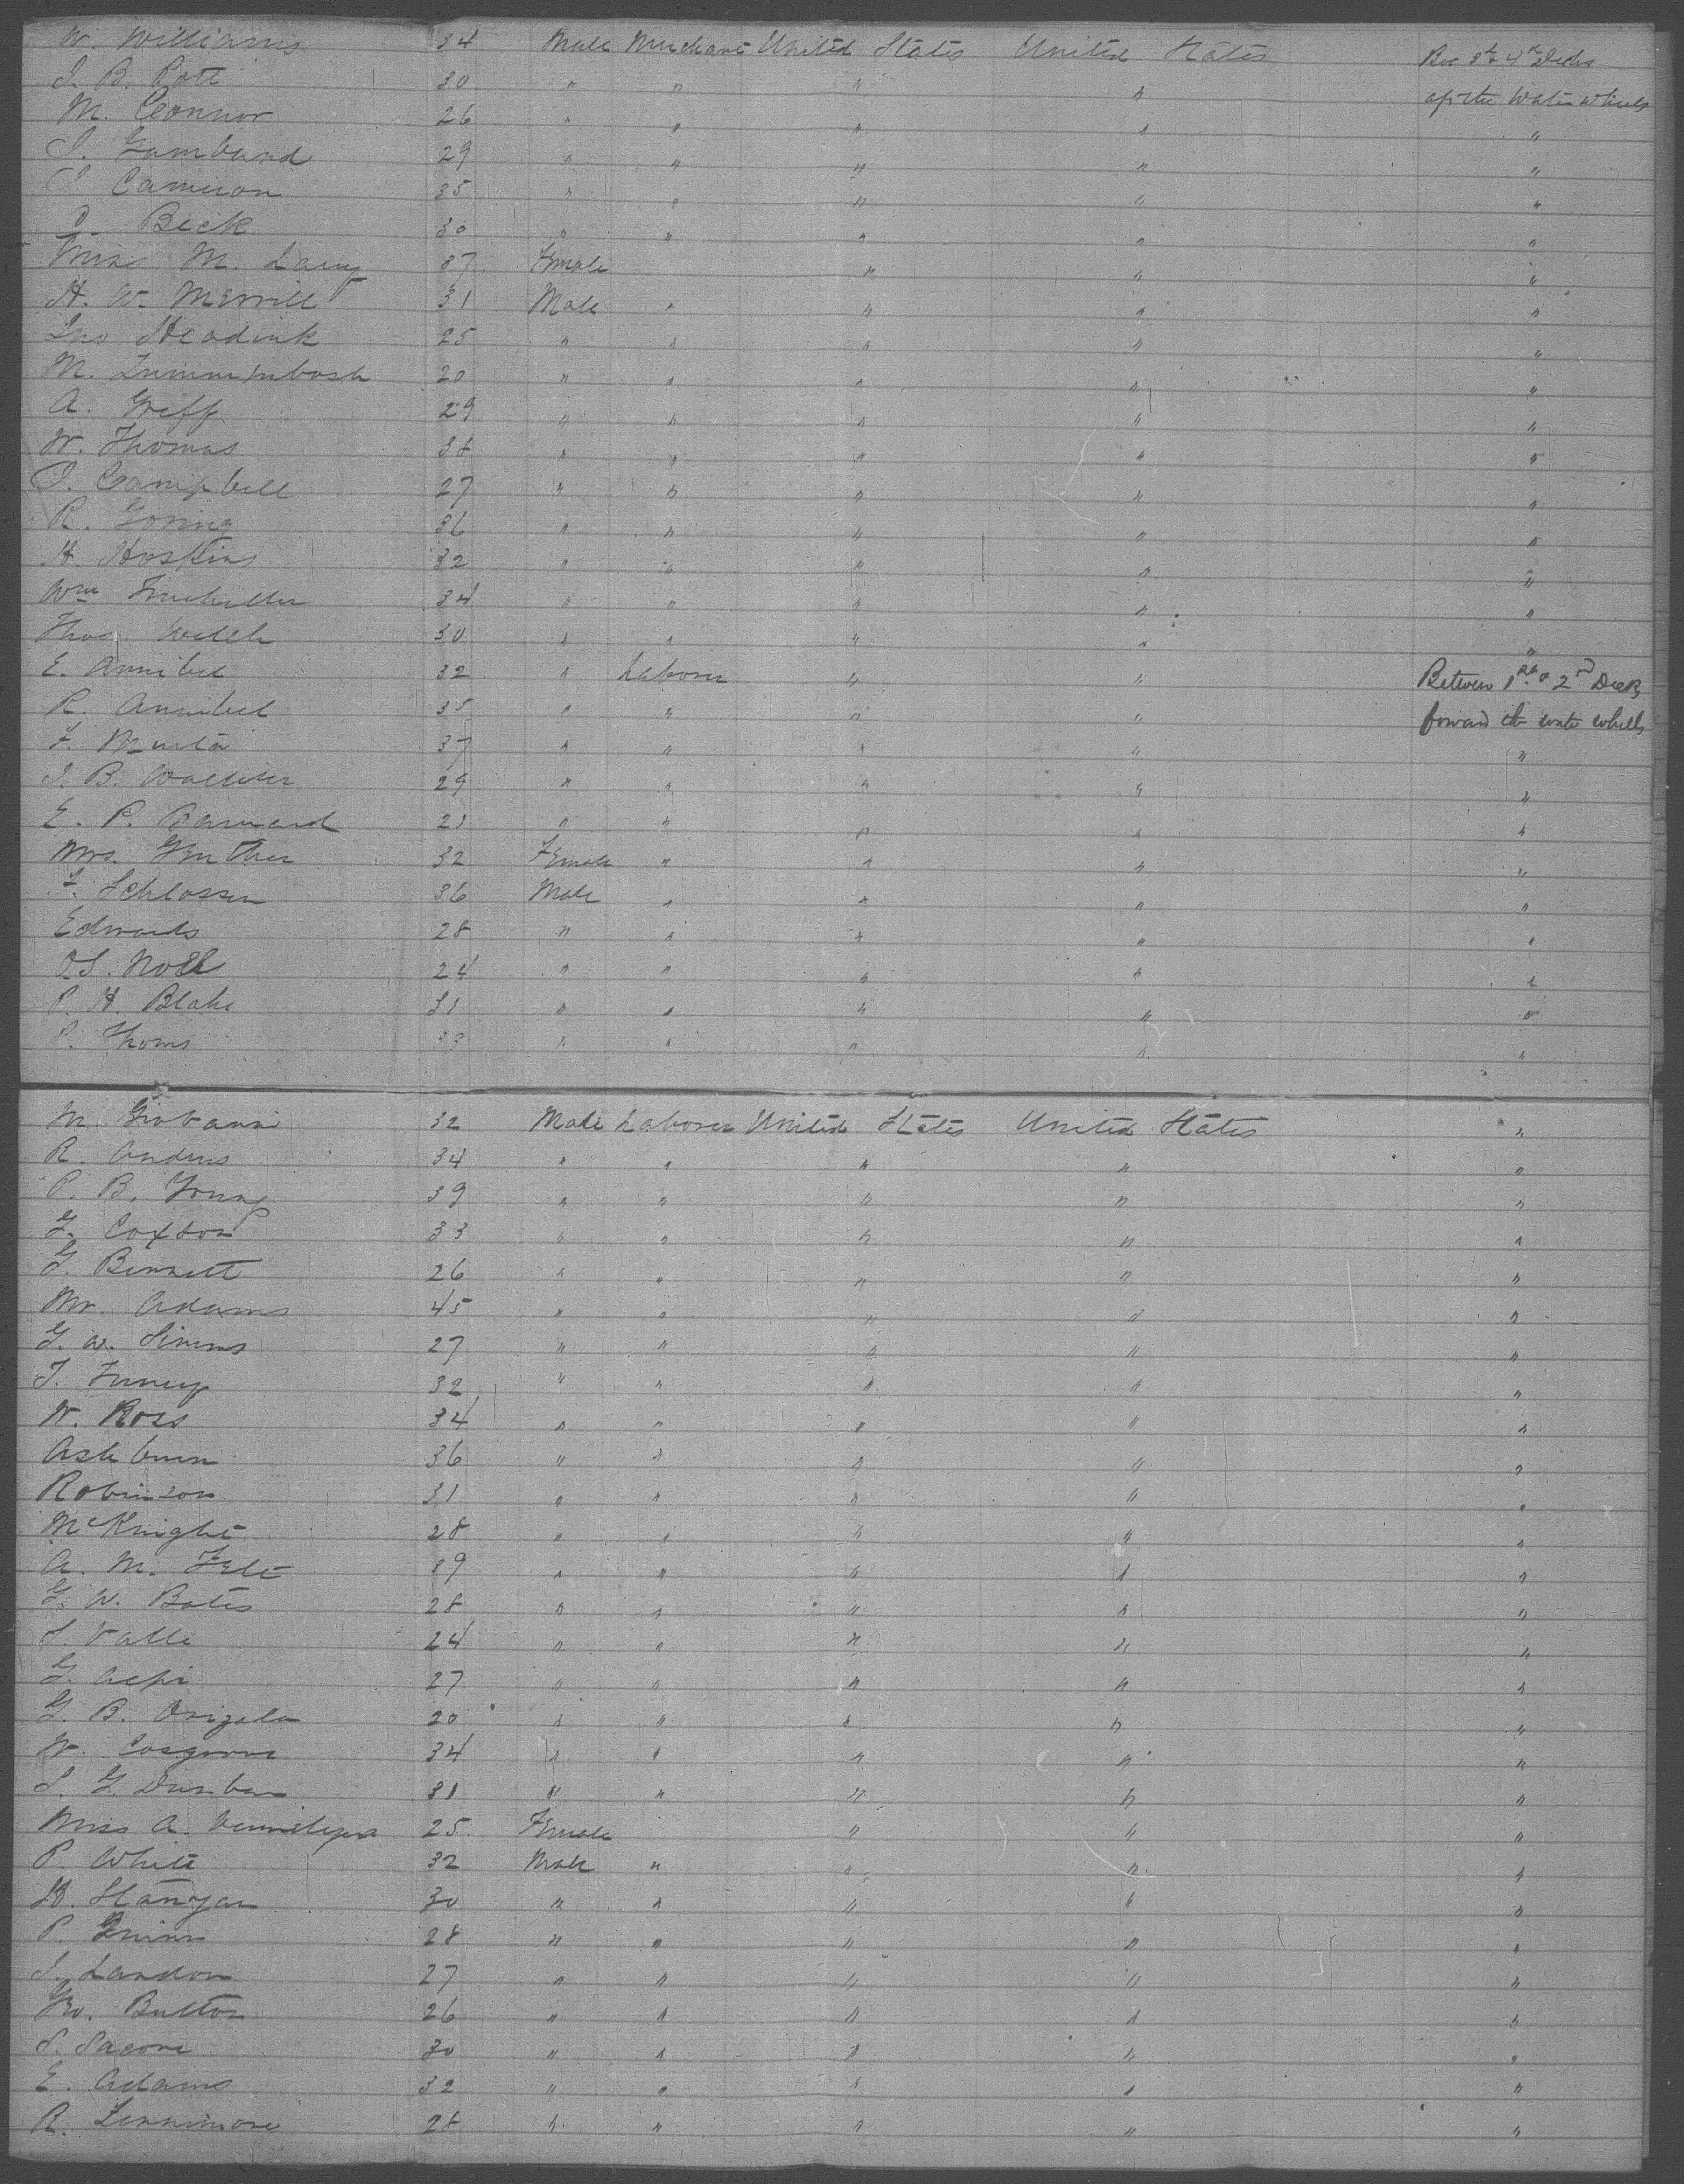 W. Williams 34 Male Merchant United States United States Bet 3d & 4th Decks
J. B. Pott 30 " " " " aft the Water wheels
M. Connor 26 " " " " "
J. 29 " " " " "
J. Cameron 35 " " " " "
Beck 30 " " " " "
Miss M. Lang 37 Female " " "
H. W. Merrill 31 Male " " " "
Jno Headink 25 " " " " "
M. 20 " " " " "
A. Greff 29 " " " " "
W. Thomas 38 " " " " "
J. Campbell 27 " " " " "
R. Goring 36 " " " " "
H. Hoskins 32 " " " " "
Wm 34 " " " " "
Thos Welch 30 " " " " "
E. Annibel 32 " Laborer " " Between 1st & 2nd Deck
R. Annibel 35 " " " " forward the water wheels
F. 37 " " " " "
J. B. 29 " " " " "
E. P. Barnard 21 " " " " "
Mrs. Gruther 32 Female " " " "
F. Schlosser 36 Male " " " "
Edwards 28 " " " " "
Noel 24 " " " " "
P. H. Blake 31 " " " " "
P. Thoms 33 " " " " "
M. Giovanni 32 Male Laborer United States United States "
R. Andrus 34 " " " " "
P. B. Young 39 " " " " "
G. Coxson 33 " " " " "
G. Bennett 26 " " " " "
Mr. Adams 45 " " " " "
G. W. Simms 27 " " " " "
T. 32 " " " " "
W. Ross 34 " " " " "
Ashburn 36 " " " " "
Robinson 31 " " " " "
McKnight 28 " " " " "
A. M. Felt 39 " " " " "
G. W. Bates 28 " " " " "
S. Valle 24 " " " " "
G. 27 " " " " "
G. B. 20 " " " " "
W. Cosgrove 34 " " " " "
S. G. Dunbar 31 " " " " "
Miss A. 25 Female " " "
P. White 32 Male " " " "
H. Stanyan 30 " " " " "
P. 28 " " " " "
J. Landon 27 " " " " "
Geo. Button 26 " " " " "
S. 30 " " " " "
E. Adams 32 " " " " "
R. 28 " " " " "